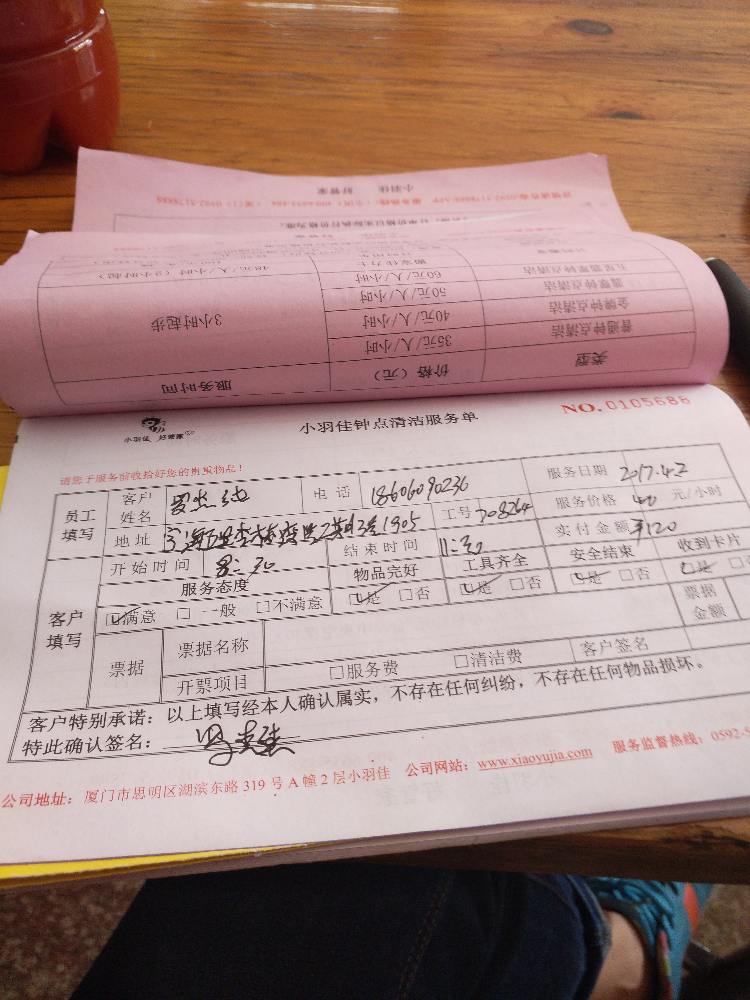 小羽佳 好管家
类型 价格（元） 服务时间
普通钟点清洁 35元/人/小时 3小时起步
金牌钟点清洁 40元/人/小时
翡翠钟点清洁 50元/人/小时
五星翡翠钟点清洁 60元/人/小时
搬家大力士 48元/人/小时（2小时起）
小羽佳 好管家
小羽佳钟点清洁服务单
NO. 0105688
请您于服务前收拾好您的贵重物品！
员工填写 客户姓名 电话 18606090236 服务日期 2017.4.2
地址 工号 308264 服务价格 40 元/小时
开始时间 8:30 结束时间 11:30 实付金额 ¥120
客户填写 服务态度 物品完好 工具齐全 安全结束 收到卡片
满意 一般 不满意 是 否 是 否 是 否 是 否
票据 票据名称 票据金额
开票项目 服务费 清洁费 客户签名
客户特别承诺：以上填写经本人确认属实，不存在任何纠纷，不存在任何物品损坏。
特此确认签名：
公司地址：厦门市思明区湖滨东路 319 号 A 幢 2 层小羽佳 公司网站：www.xiaoyujia.com 服务监督热线：0592-5